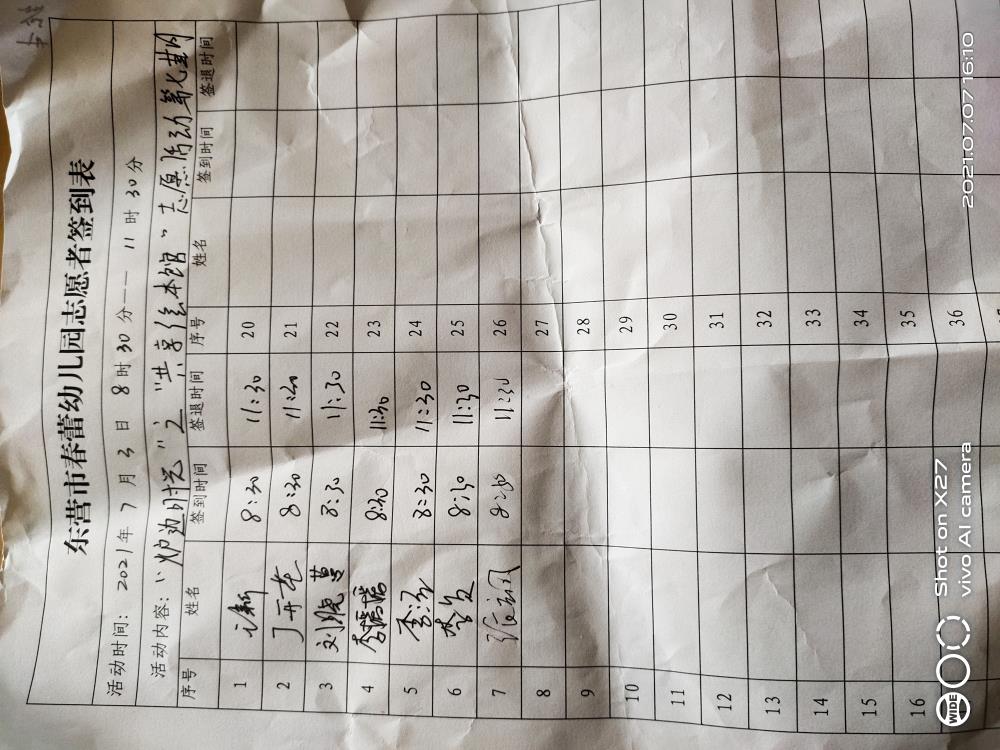 东营市春蕾幼儿园志愿者签到表
活动时间： 2021年 7 月 3 日 8 时 30 分—— 11 时 30 分
活动内容："炉边时光"之"共享绘本馆"志愿活动第七期
序号 姓名 签到时间 签退时间 序号 姓名 签到时间 签退时间
1 8:30 11:30 20
2 丁开花 8:30 11:30 21
3 刘晓 8:30 11:30 22
4 李瑞瑞 8:30 11:30 23
5 李 8:30 11:30 24
6 8:30 11:30 25
7 张 8:30 11:30 26
8 27
9 28
10 29
11 30
12 31
13 32
14 33
15 34
16 35
36
Shot on X27
vivo AI camera
WIDE
2021.07.07 16:10